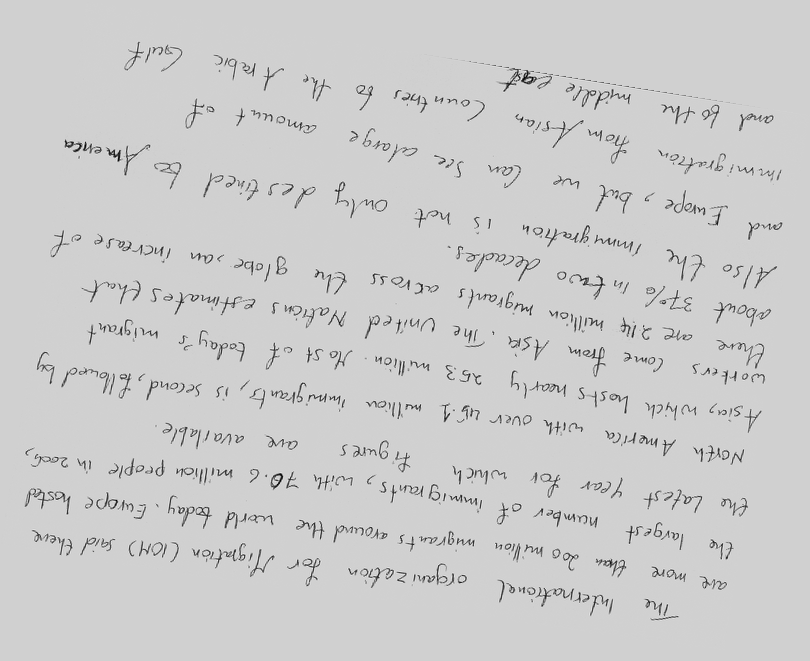 The International organization for Migration (IOM) said there
are more than 200 million migrants around the world today. Europe hosted
the largest number of immigrants, with 70.6 million people in 2005,
the latest year for which figures are available.
North America with over 45.1 million immigrants, is second, followed by
Asia, which hosts nearly 25.3 million. Most of today's migrant
workers come from Asia. The United Nations estimates that
there are 214 million migrants across the globe, an increase of
about 37% in two decades.
Also the immigration is not only destined to America
and Europe, but we can see alarge amount of
immigration from Asian Countries to the Arabic Gulf
and to the middle east